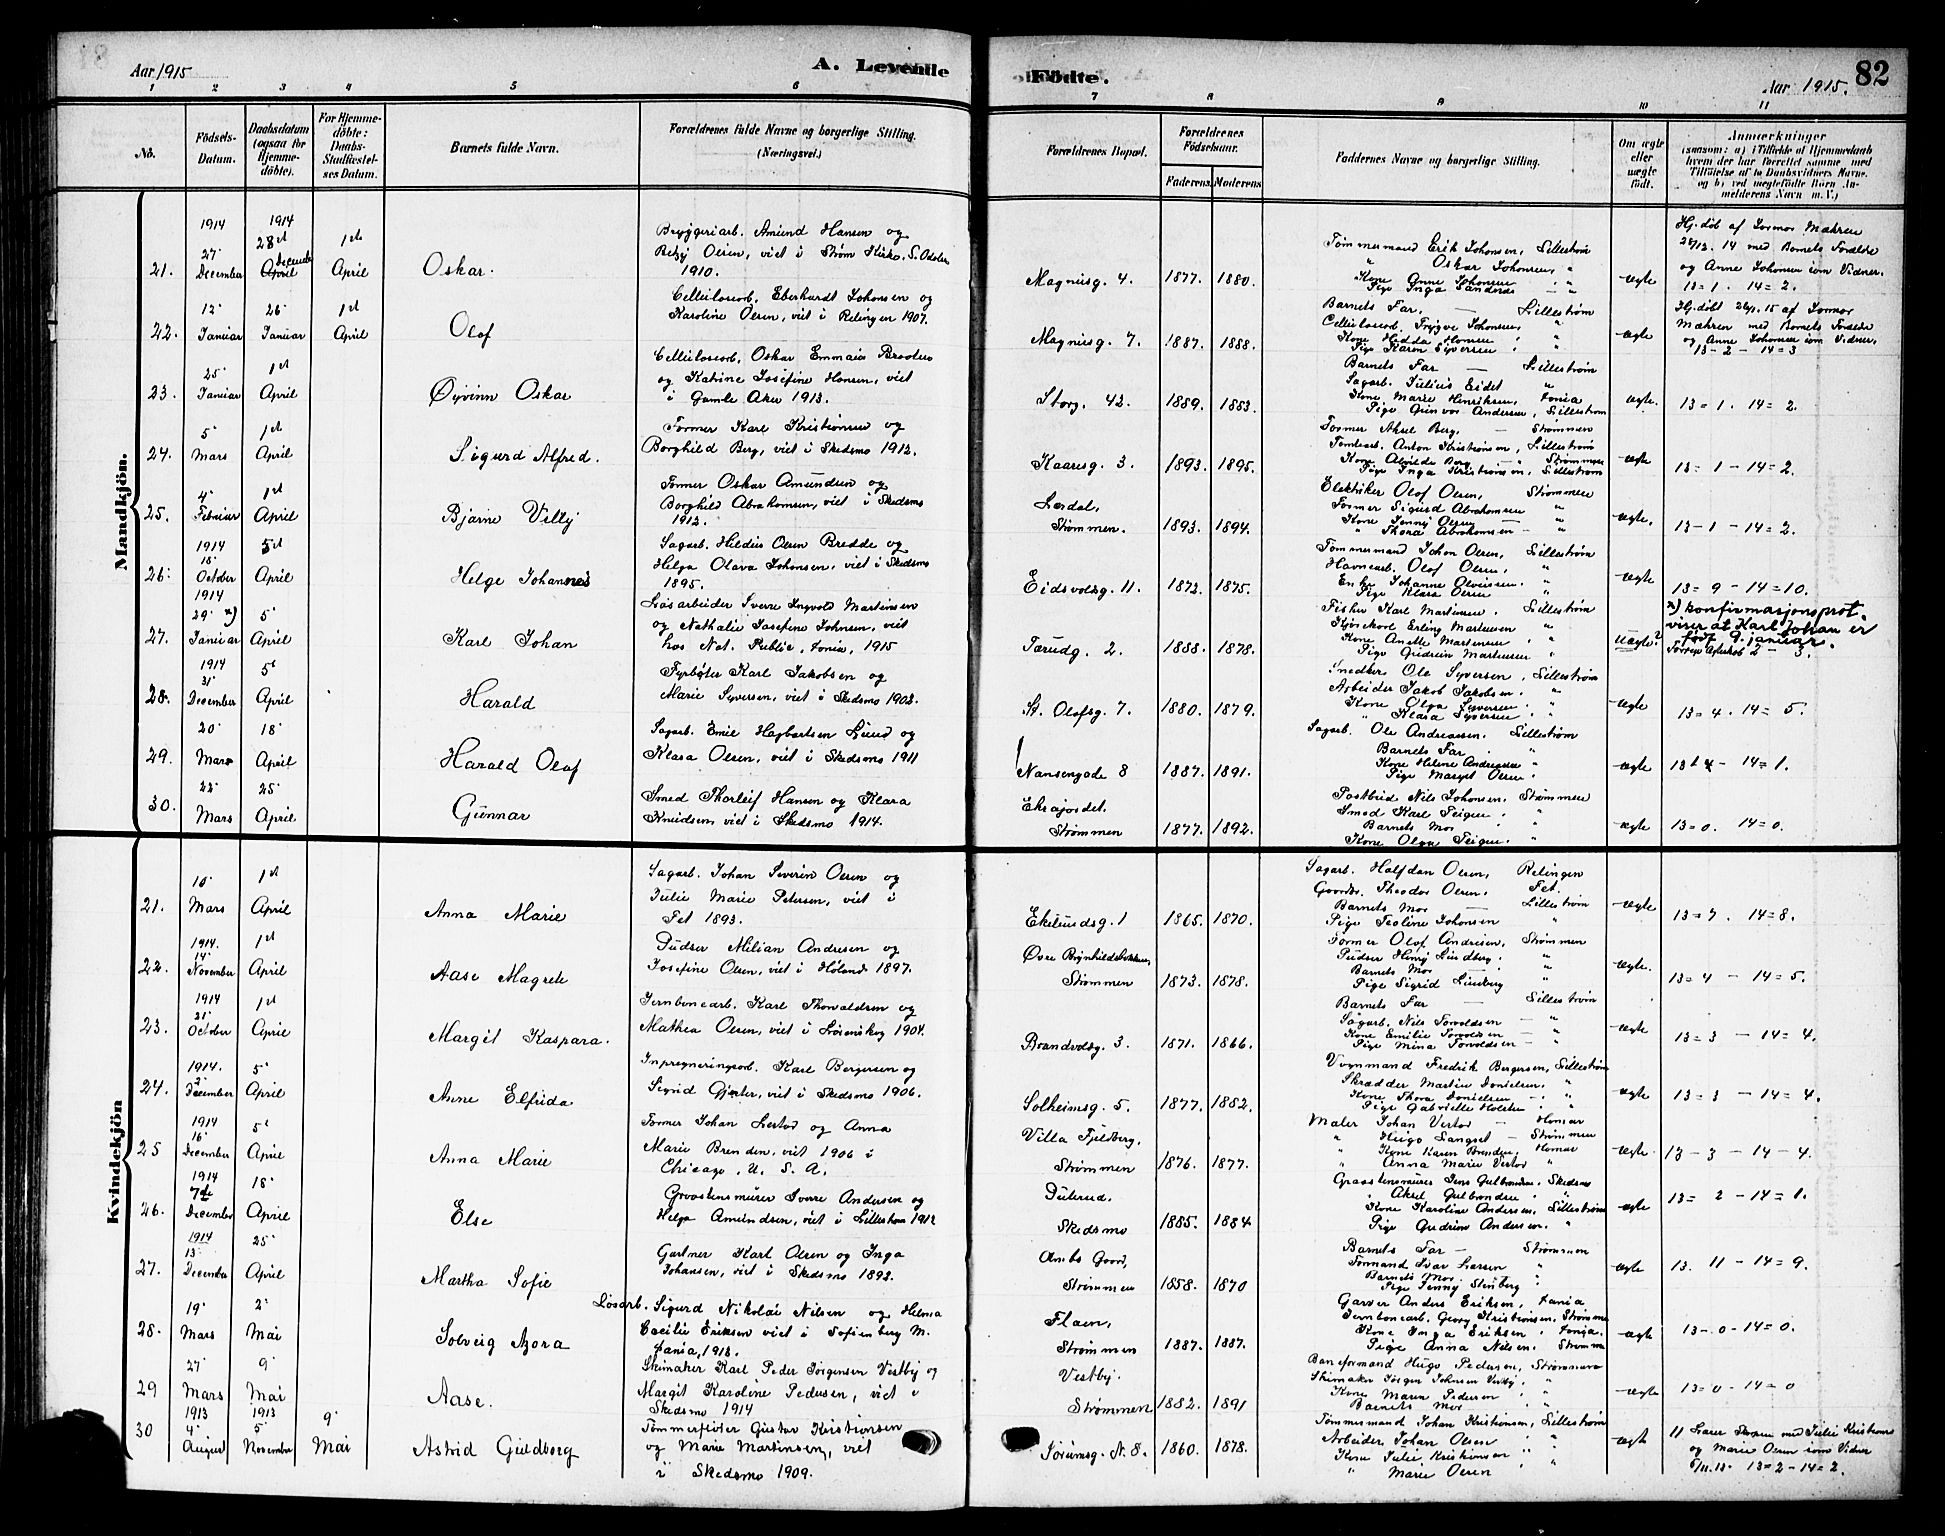 Aar 1915
A. Levende
1 2 3 4 5 6
No.
Fødsels-Datum.
Daabsdatum (ogsaa for Hjemmedøbte).
For Hjemmedøbte: Daabs-Stadfæstelses Datum.
Barnets fulde Navn.
Forældrenes fulde Navne og borgerlige Stilling. (Næringsvei.)
Mandkjön.
21. 1914 27 December 1914 28de April December 1ste April Oskar. Bryggeriarb. Amund Hansen og
Betsy Olsen, viet i Strøm Kirke, S. Odalen
1910.
22. 12 Januar 26 Januar 1st April Olaf Cellulosearb. Eberhardt Johansen og
Karoline Olsen, viet i Relingen 1907.
23. 25 Januar 1st April Øyvinn Oskar Cellulosearb. Oskar
og Katrine Josefine Hansen, viet
i Gamle Aker 1913.
24. 5 Mars 1st April Sigurd Alfred. Former Karl Kristiansen og
Borghild Berg, viet i Skedsmo 1912.
25. 4 Februar 1st April Bjarne Villy Former Oskar Amundsen og
Borghild Abrahamsen, viet i Skedsmo
1912.
26. 1914 18 October 5te April Helge Johannes Sagarb. Hildeus Olsen Bredde og
Helga Olava Johansen, viet i Skedsmo
1895.
27. 1914 29 x) Januar 5 April Karl Johan Løsarbeider Sverre Ingvold Martinsen
og Nathalie Josefine Johnsen, viet
hos Not. Public, Fania, 1915
28. 1914 31 December 5 April Harald Fyrbøter Karl Jakobsen og
Marie Syversen, viet i Skedsmo 1902.
29. 20 Mars 18 April Harald Olaf Sagarb. Emil Hagbartsen Lund og
Klara Olsen, viet i Skedsmo 1911
30. 22 Mars 25 April Gunnar Smed Thorleif Hansen og Klara
Knudsen, viet i Skedsmo 1914.
Kvindekjön
21. 10 Mars 1st April Anna Marie Sagarb. Johan Severin Olsen og
Julie Marie Petersen, viet i
Fet 1893.
22. 1914. 14 November 1st April Aase Magrete Pudser Milian Andresen og
Josefine Olsen, viet i Høland 1897.
23. 1914 21 October 1st April Margit Kaspara. Jernbanearb. Karl Thorvaldsen og
Mathea Olsen, viet i Lørenskog 1904.
24. 1914. 2 December 5 April Anne Elfrida Inpregneringsarb. Karl Bergersen og
Sigrid Gjerter, viet i Skedsmo 1906.
25 1914 16 December 5 April Anna Marie Former Johan og Anna
Marie Brenden, viet 1906 i
Chicago, U. S. A.
26. 1914 7de December 18 April Else Graastensmurer Sverre Andersen og
Helga Amundsen, viet i Lillestrøm 1912
27. 1914 13 December 25 April Martha Sofie Gartner Karl Olsen og Inga
Johansen, viet i Skedsmo 1892.
28. 19 Mars 2 Mai Solveig Azora Løsarb. Sigurd Nikolai Nilsen og Helma
Cecilie Eriksen viet i Sofienberg M.
Fania, 1913.
29 27 Mars 9 Mai Aase. Skimaker Karl Peder Jørgensen Vestby og
Margit Karoline Pedersen, viet i
Skedsmo 1914
30 1913 4 August 1913 5 November 9 Mai Astrid Guldborg Tømmerfløter Gustav Kristiansen
og Marie Martinsen, viet
i Skedsmo 1909.
Födte.
82
Aar 1915.
7 8 9 10 11
Forældrenes Bopæl.
Forældrenes Födselsaar.
Faderens. Moderens.
Faddernes Navne og borgerlige Stilling.
Om ægte eller uægte födt.
Anmærkninger
(saasom: a) i Tilfælde af Hjemmedaab
hvem der har forrettet samme, med
Tilföielse af to Daabsvidners Navne.
og b) ved uægtefödte Börn Anmelderens Navn m. V.)
Magnusg. 4. 1877. 1880. Tømmermand Erik Johansen, Lillestrøm
" Oskar Johansen, "
Kone Anne Johansen "
Pige Inga Sanderos "
ægte Hj. døb af Jormor Mæhren
28/12. 14 med Barnets Forældre
og Anne Johansen som Vidner.
13 = 1. 14 = 2.
Magnusg. 7. 1887. 1888. Barnets Far. — Lillestrøm
Cellulosearb. Trygve Johansen, "
Kone Hedda Hansen "
Pige Karen Syversen "
ægte Hj. døbt 26/1. 15 af Jormor
Mæhren med Barnets Forældre
og Anne Johansen som Vidner.
13 - 2 - 14 = 3
Storg. 42. 1889. 1883. Barnets Far — Lillestrøm
Sagarb. Julius Eidet "
Kone Marie Henriksen, Fania
Pige Gunvor Andersen, Lillestrøm
ægte. 13 = 1. 14 = 2.
Kaaresg. 3. 1893. 1895. Former Aksel Berg, — Strømmen
Tomtearb. Anton Kristiansen, Lillestrøm
Kone Alvilde Berg — Strømmen
Pige Inga Kristiansen, Lillestrøm
ægte 13 = 1 - 14 = 2.
Lærdal, Strømmen. 1893. 1894. Elektriker Olaf Olsen, Strømmen
Former Sigurd Abrahamsen "
Kone Jenny Olsen — "
" Thora Abrahamsen — "
ægte. 13 - 1 - 14 = 2.
Eidsvoldsg. 11. 1872. 1875. Tømmermand Johan Olsen, Lillestrøm
Havnearb. Olaf Olsen, "
Enke Johanne Oliversen. "
Pige Klara Olsen "
ægte 13 = 9 - 14 = 10.
Torudg. 2. 1888. 1878. Fisker Karl Martinsen. Lillestrøm
Hjørekarl Erling Martinsen "
Kone Anette Martinsen "
Pige Gudrun Martinsen "
Uægte? x) konfirmasjonsprot.
viser at Karl Johan er
født 9. januar.
2 - 3.
St. Olafsg. 7. 1880. 1879. Snedker Ole Syversen, Lillestrøm
Arbeider Jakob Jakobsen. "
Kone Olga Syversen. "
" Klara Syversen "
ægte 13 = 4. 14 = 5.
Nansengade 8 1887. 1891. Sagarb. Ole Andreassen. Lillestrøm
Barnets Far "
Kone Helene Andreassen "
Pige Margit Olsen. "
ægte 13 - 14 = 1.
Ekrajordet. Strømmen 1877. 1892. Postbud Nils Johansen. Strømmen
Smed Karl Teigen. "
Barnets Mor "
Kone Olga Teigen. "
ægte 13 = 0. 14 = 0.
Ekelundsg. 1 1865. 1870. Sagarb. Halfdan Olsen, Relingen
Gaardbr. Theodor Olsen. Fet.
Barnets Mor — Lillestrøm
Pige Teoline Johansen "
ægte 13 = 7. 14 = 8.
Øvre Brynhildsbakken, Strømmen 1873. 1878. Former Olaf Andresen, Strømmen
Pudser Henry Lundberg. "
Barnets Mor — "
Pige Sigrid Lundberg "
ægte. 13 = 4 - 14 = 5.
Brandvoldg. 3. 1871. 1866. Barnets Far — Lillestrøm
Sagarb. Nils Torvoldsen — "
Kone Emilie Torvoldsen — "
Pige Mina Torvoldsen — "
ægte 13 = 3 - 14 = 4.
Solheimsg. 5. 1877. 1882. Vognmand Fredrik Bergersen, Lillestrøm
Skrædder Martin Danielsen. "
Kone Thora Danielsen — "
Pige Gabrielle Holster — "
ægte 13 = 3 - 14 = 4.
Villa Fjeldberg. Strømmen 1876. 1877. Maler Johan Vertor — Hamar
" Hugo Langset — Strømmen
" Kone Karen Brenden, Hamar
" Anna Marie Vertor "
ægte. 13 - 3 - 14 - 4.
Duterud. Skedsmo 1885. 1884 Graastensmurer Jens Gulbrandsen. Skedsmo
" Aksel Gulbrandsen "
Kone Karoline Andersen, Lillestrøm
Pige Gudrun Andersen. "
ægte 13 = 2 - 14 = 1.
Ambs Gaard, Strømmen 1858. 1870 Barnets Far — Strømmen
Formand Ivar Larsen "
Barnets Mor "
Pige Jenny Stenberg "
ægte 13. 11 - 14 = 9.
Flaen, Strømmen 1887. 1887. Garver Anders Eriksen, Fania
Jernbanearb. Georg Kristiansen. Strømmen
Kone Inga Eriksen. Fania.
Pige Anna Nilsen. Strømmen
ægte 13 - 0 - 14 = 0.
Vestby. Strømmen 1882. 1891 Baneformand Hugo Pedersen, Strømmen
Skimaker Jørgen Johnsen Vestby. "
Kone Maren Pedersen "
Barnets Mor "
ægte 13 = 0 - 14 = 0
Sørumsg. N. 8. 1860. 1878. Tømmermand Johan Kristiansen, Lillestrøm
Arbeider Johan Olsen "
Kone Julie Kristiansen "
" Marie Olsen "
ægt med Julie Kristians.
og Marie Olsen som Vidner
5/11. 13. 13 = 2 - 14 = 2.